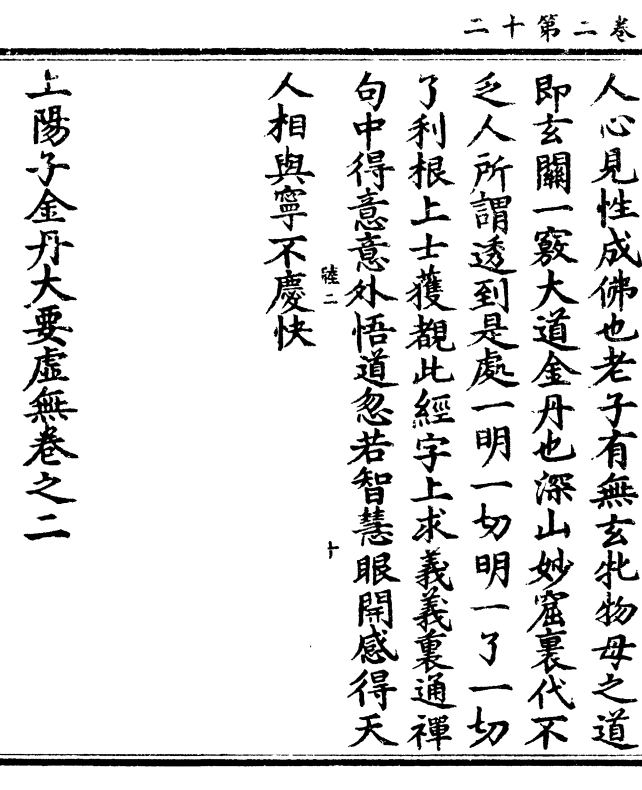 卷二第十二
人心見性成佛也老子有無玄牝物母之道
即玄關一竅大道金丹也深山妙窟裏代不
乏人所謂透到是處一明一切明一了一切
了利根上士獲覩此經字上求義義裏通禪
句中得意意外悟道忽若智慧眼開感得天
陸二
十
人相與寧不慶快
上陽子金丹大要虛無卷之二